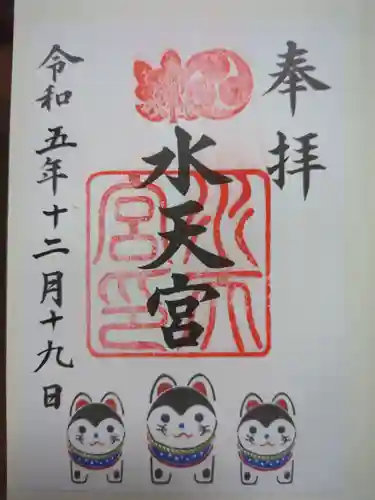 奉拝
水天宮
令和五年十二月十九日
水天宮印